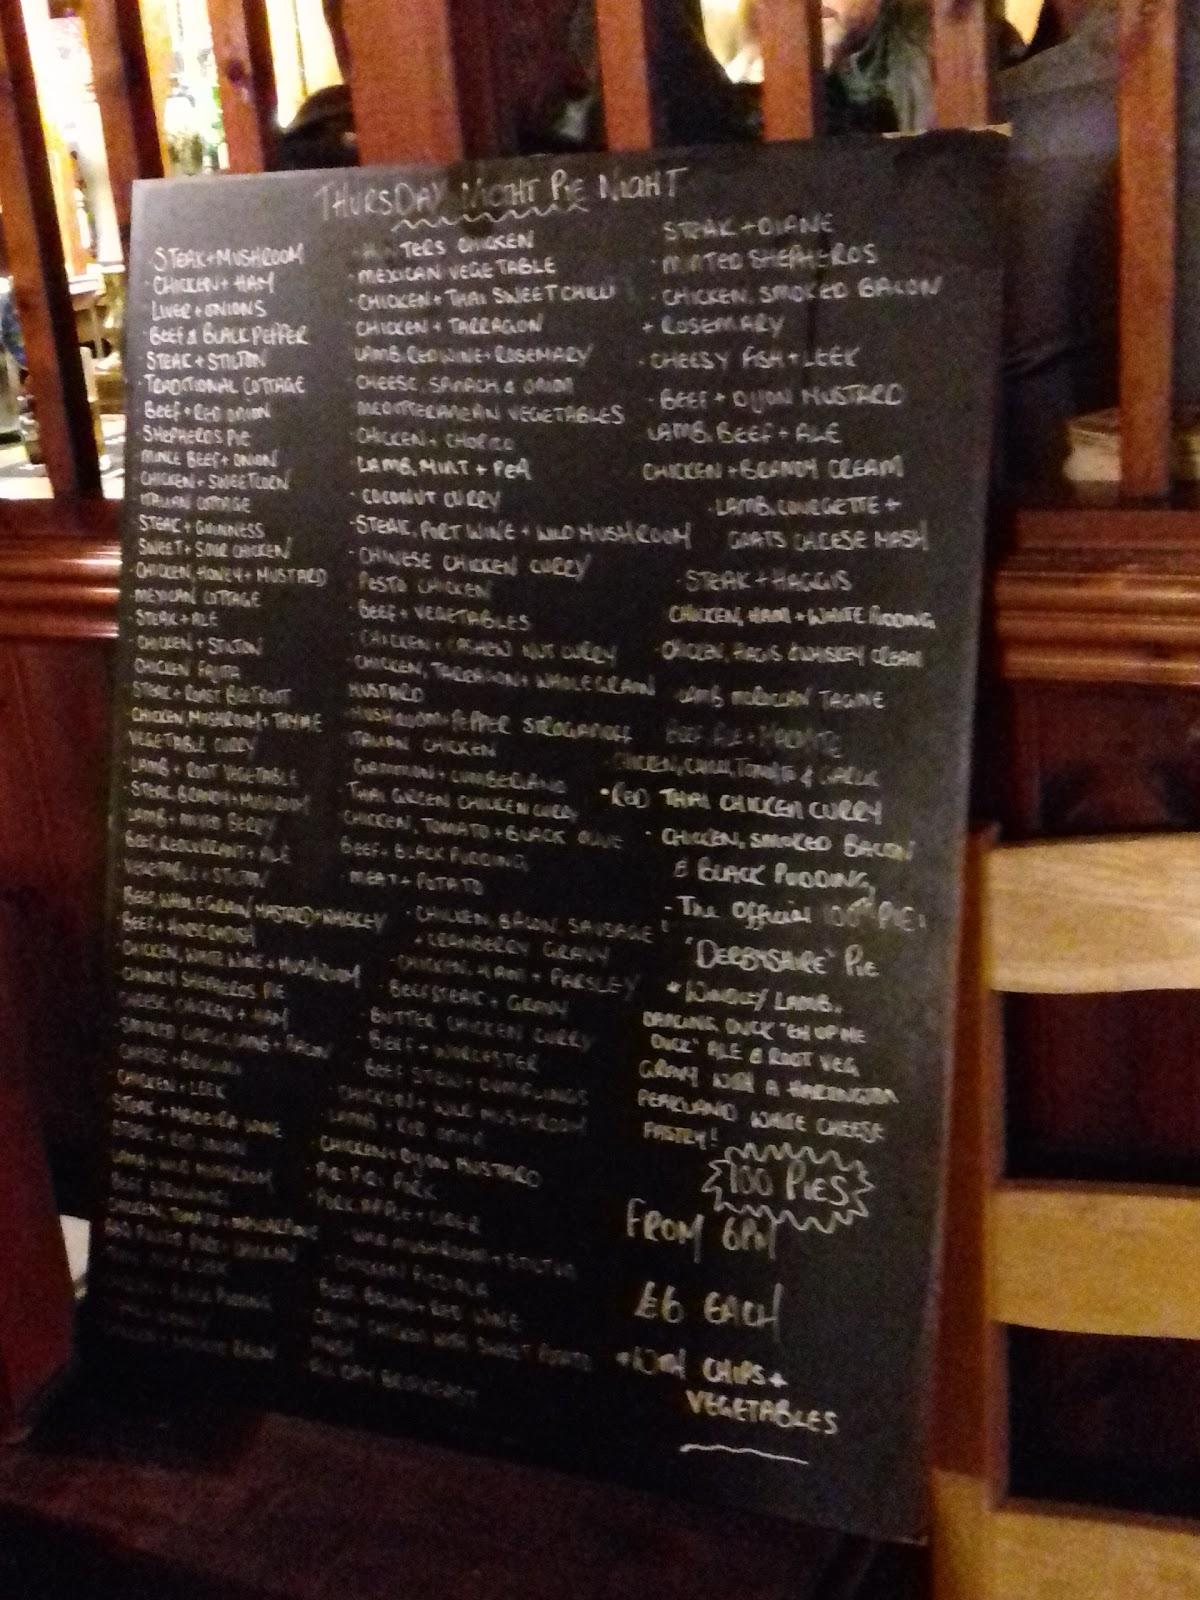 THURSDAY NIGHT PIE NIGHT
STEAK + MUSHROOM
· CHICKEN + HAM
LIVER + ONIONS
· BEEF & BLACK PEPPER
· STEAK + STILTON
· TRADITIONAL COTTAGE
· BEEF + RED ONION
· SHEPHERDS PIE
MINCE BEEF + ONION
· CHICKEN + SWEETCORN
ITALIAN COTTAGE
STEAK + GUINNESS
SWEET + SOUR CHICKEN
· CHICKEN, HONEY + MUSTARD
MEXICAN COTTAGE
· STEAK + ALE
· CHICKEN + STILTON
CHICKEN FAJITA
STEAK + ROAST BEETROOT
CHICKEN MUSHROOM + THYME
VEGETABLE CURRY
LAMB + ROOT VEGETABLE
· STEAK BRANDY + MUSHROOM
LAMB + MIXED BERRY
BEEF, REDCURRANT + ALE
VEGETABLE + STILTON
BEEF, WHOLEGRAIN MASTARD + WHISKEY
BEEF + HORSERADISH
· CHICKEN, WHITE WINE + MUSHROOM
SHEPHERDS PIE
CHEESE, CHICKEN + HAM
· SMOKED GARLIC, LAMB + BACON
CHEESE +
· CHICKEN + LEEK
STEAK + MADEIRA WINE
STEAK + RED ONION
LAMB + WILD MUSHROOM
BEEF
CHICKEN, TOMATO + MASCARPONE
CHICKEN
& LEEK
+ BLACK PUDDING
+ SMOKED BACON
TERS CHICKEN
· MEXICAN VEGETABLE
· CHICKEN + THAI SWEET CHILLI
· CHICKEN + TARRAGON
LAMB, RED WINE + ROSEMARY
CHEESE, SPINACH & ONION
MEDITERANEAN VEGETABLES
· CHICKEN + CHORIZO
· LAMB, MINT + PEA
· COCONUT CURRY
· STEAK, PORT WINE + WILD MUSHROOM
· CHINESE CHICKEN CURRY
PESTO CHICKEN
· BEEF + VEGETABLES
· CHICKEN + CASHEW NUT CURRY
· CHICKEN, TARRAGON + WHOLEGRAIN
MUSTARD
MUSHROOM + PEPPER STROGANOFF
ITALIAN CHICKEN
GAMMON + CUMBERLAND
THAI GREEN CHICKEN CURRY
CHICKEN, TOMATO + BLACK OLIVE
BEEF + BLACK PUDDING
· MEAT + POTATO
· CHICKEN, BACON, SAUSAGE
+ CRANBERRY GRAVY
· CHICKEN, HAM + PARSLEY
· BEEFSTEAK + GRAVY
· BUTTER CHICKEN CURRY
· BEEF + WORCESTER
BEEF STEW + DUMPLINGS
· CHICKEN + WILD MUSHROOM
LAMB + RED ONION
· CHICKEN + DIJON MUSTARD
· PIRI PIRI PORK
· PORK, APPLE + CIDER
WILD MUSHROOM + STILTON
· CHICKEN
BEEF, BACON + RED WINE
CAJUN CHICKEN WITH SWEET POTATO
MASH
· ALL DAY BREAKFAST
STEAK + DIANE
· MINTED SHEPHERDS
· CHICKEN, SMOKED BACON
+ ROSEMARY
· CHEESY FISH + LEEK
· BEEF + DIJON MUSTARD
LAMB, BEEF + ALE
CHICKEN + BRANDY CREAM
· LAMB, COURGETTE +
GOATS CHEESE MASH
· STEAK + HAGGIS
CHICKEN, HAM + WHITE PUDDING
· CHICKEN, HAGIS & WHISKEY CREAM
LAMB MORROCAN TAGINE
BEEF ALE + MARMITE
· CHICKEN, CHILLI, TOMATO & GARLIC
· RED THAI CHICKEN CURRY
· CHICKEN, SMOKED BACON
& BLACK PUDDING
- The Official 100TH PIE!
"DERBYSHIRE" PIE
* WINDLEY LAMB,
DANCING DUCK "EH UP ME
DUCK" ALE & ROOT VEG
GRAVY WITH A HARTINGTON
PEAKLAND WHITE CHEESE
PASTRY!
100 PIES
FROM 6PM
£6 EACH
* WITH CHIPS +
VEGETABLES